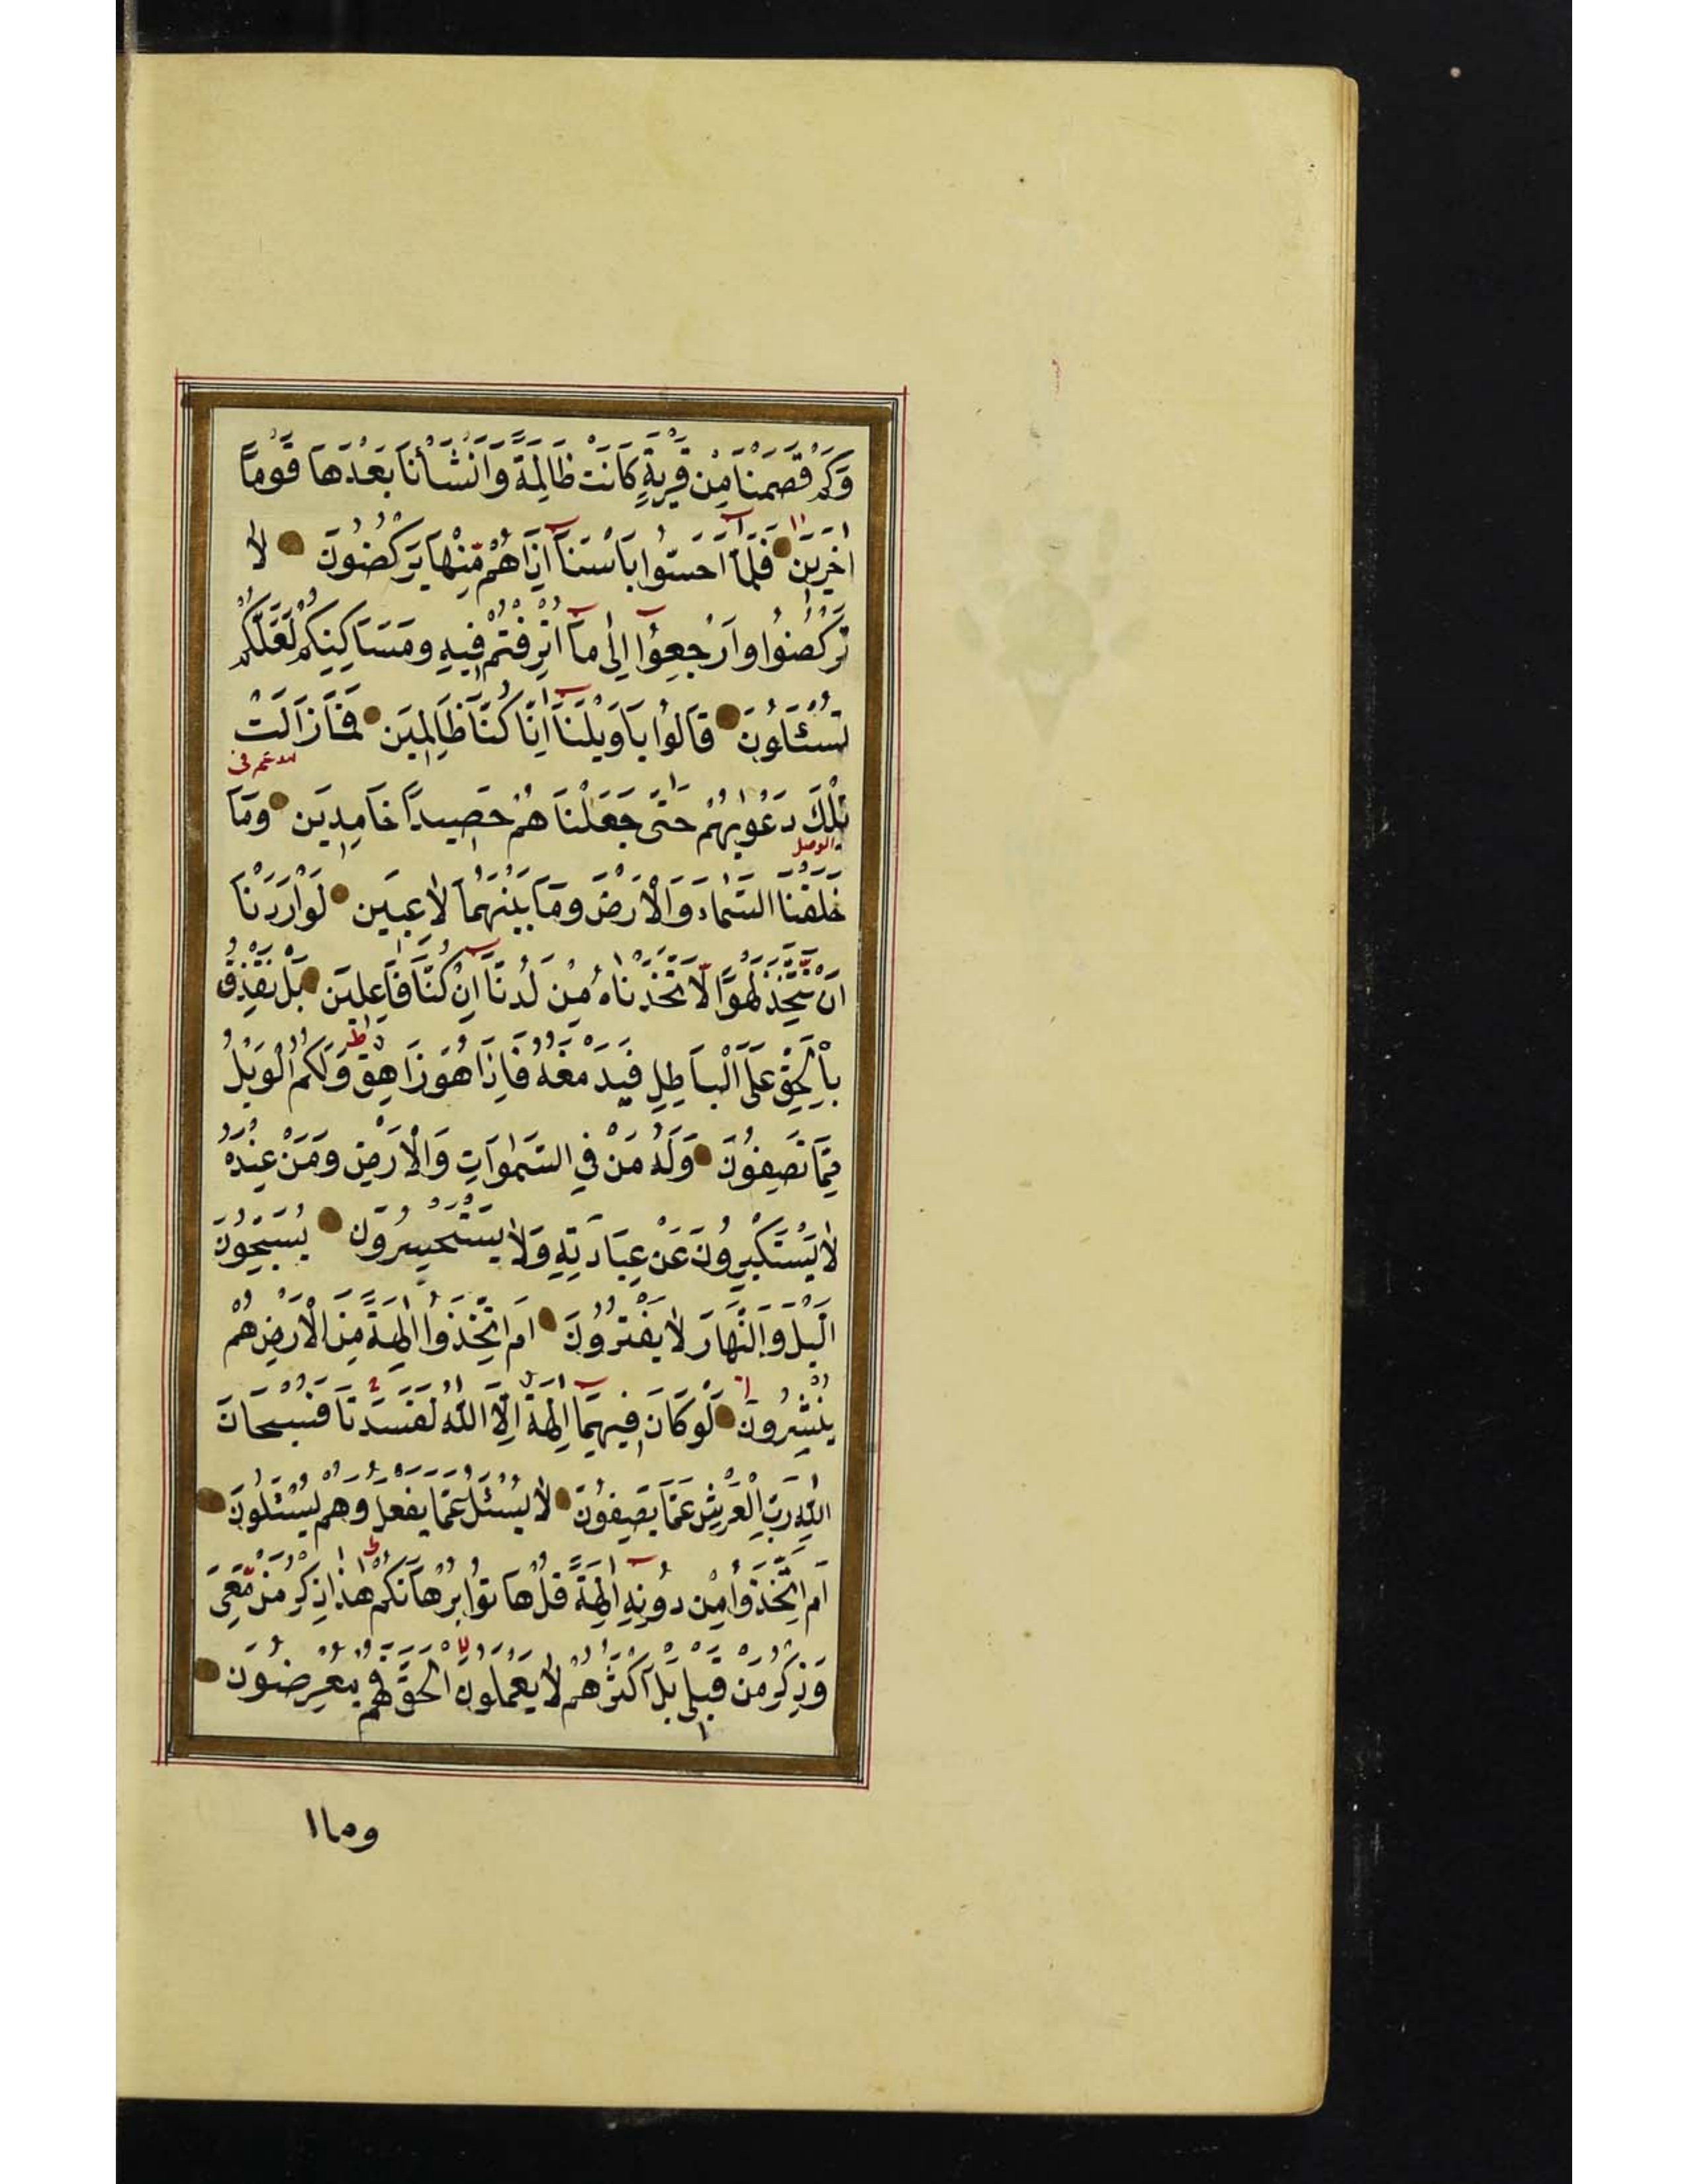 وَكَمْ قَصَمْنَا مِنْ قَرْيَةٍ كَانَتْ ظَالِمَةً وَاَنْشَأْنَا بَعْدَهَا قَوْمًا
اٰخَرِيَنَ فَلَمَّا اَحَسُّوا بَاْسَنَا اِذَا هُمْ مِنْهَا يَرْكُضُونَ لاٰ
تَرْكُضُوا وَارْجِعُوا اِلٰى مَا اُتْرِفْتُمْ فِيهِ وَمَسَاكِنِكُمْ لَعَلَّكُمْ
تُسْئَلُونَ قَالُوا يَا وَيْلَنَا اِنَّا كُنَّا ظَالِمِيَن فَمَا زَالَتْ
تِلْكَ دَعْوٰيهُمْ حَتّٰى جَعَلْنَا هُمْ حَصِيدًا خَامِدِيَن وَمَا
خَلَقْنَا السَّمَاءَ وَالْاَرْضَ وَمَا بَيْنَهُمَا لاٰعِبِيَن لَوْ اَرَدْنَا
اَنْ نَتَّخِذَ لَهْوًا لَاتَّخَذْنَاهُ مِنْ لَدُنَّا اِنْ كُنَّا فَاعِلِيَن بَلْ نَقْذِفُ
بِالْحَقِّ عَلَى الْبَاطِلِ فَيَدْمَغُهُ فَاِذَا هُوَ زَاهِقٌ وَلَكُمُ الْوَيْلُ
مِمَّا تَصِفُونَ وَلَهُ مَنْ فِي السَّمٰوَاتِ وَالْاَرْضِ وَمَنْ عِنْدَهُ
لاٰ يَسْتَكْبِرُونَ عَنْ عِبَادَتِهِ وَلاٰ يَسْتَحْسِرُونَ يُسَبِّحُونَ
الَّيْلَ وَالنَّهَارَ لاٰ يَفْتُرُونَ اَمِ اتَّخَذُوا اٰلِهَةً مِنَ الْاَرْضِ هُمْ
يُنْشِرُونَ لَوْ كَانَ فِيهِمَا اٰلِهَةٌ اِلَّا اللّٰهُ لَفَسَدَتَا فَسُبْحَانَ
اللّٰهِ رَبِّ الْعَرْشِ عَمَّا يَصِفُونَ لاٰ يُسْئَلُ عَمَّا يَفْعَلُ وَهُمْ يُسْئَلُونَ
اَمِ اتَّخَذُوا مِنْ دُونِهِ اٰلِهَةً قُلْ هَاتُوا بُرْهَانَكُمْ هٰذَا ذِكْرُ مَنْ مَعِىَ
وَذِكْرُ مَنْ قَبْلِى بَلْ اَكْثَرُهُمْ لاٰ يَعْمَلُونَ الْحَقَّ فَهُمْ مُعْرِضُونَ
وما ا